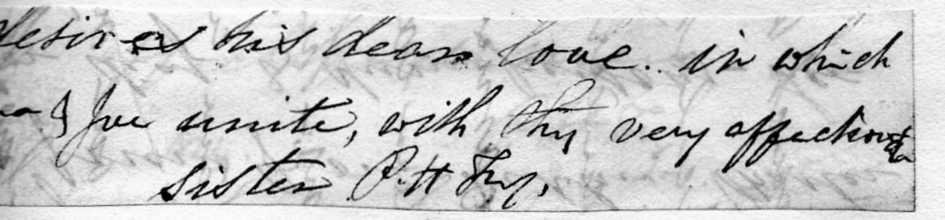 desires his dear love. in which
& Joe unite, with Thy very affectionate
sister P. H Fry.